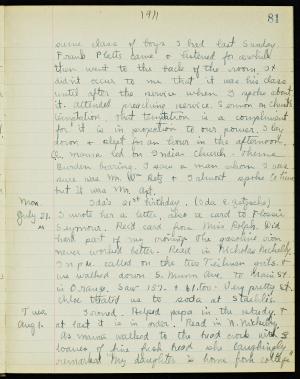 1911
81
same class of boys I had last Sunday.
Frank Pletts came & listened for awhile
then went to the back of the room. It
didn't occur to me that it was his class
until after the service when I spoke about
it. Attended preaching service. Sermon on Christ's
temptation. That temptation is a compliment
for it is in proportion to our power. I lay
down & slept for an hour in the afternoon.
C. mania led on India Church. Theme
Burden bearing. I saw a man whom I was
sure was Mr. & I almost spoke to him
but it was Mr. Apt.
Mon. Ida's 21st birthday. (Ida
July 31. I wrote her a letter, also a card to Flossie
Seymour. Rec'd card from Miss Rolph. Did
hard part of my ironing. The gasoline iron
never worked better. Read in Nicholas Nickelby.
In p.m. called on the Teilman girls. &
we walked down S. Munn Ave. to Main St
in Orange. Saw 157. & Very pretty st.
Chloe treated us to soda at
Tues. Ironed. Helped papa in the study &
Aug 1. at last it is in order. Read in N. Nickelby.
As mania walked to the head with
loaves of fine fresh bread she laughingly
remarked "My daughter is home from college"